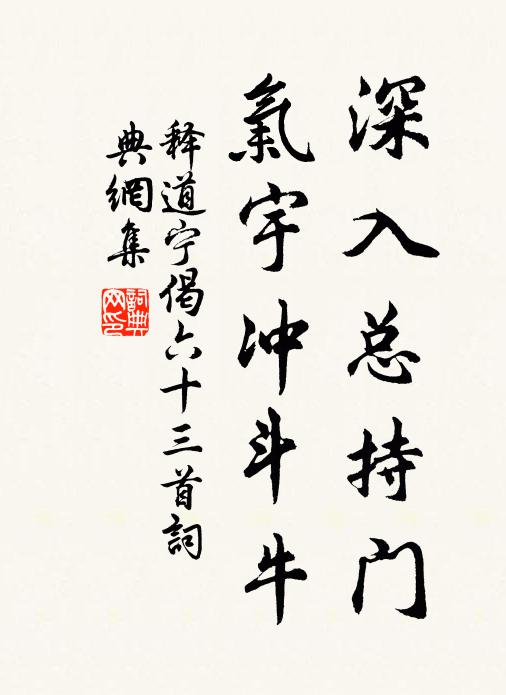 深入总持门
氣宇冲斗牛
释道宁偈六十三首詞
典網集
詞典
网印